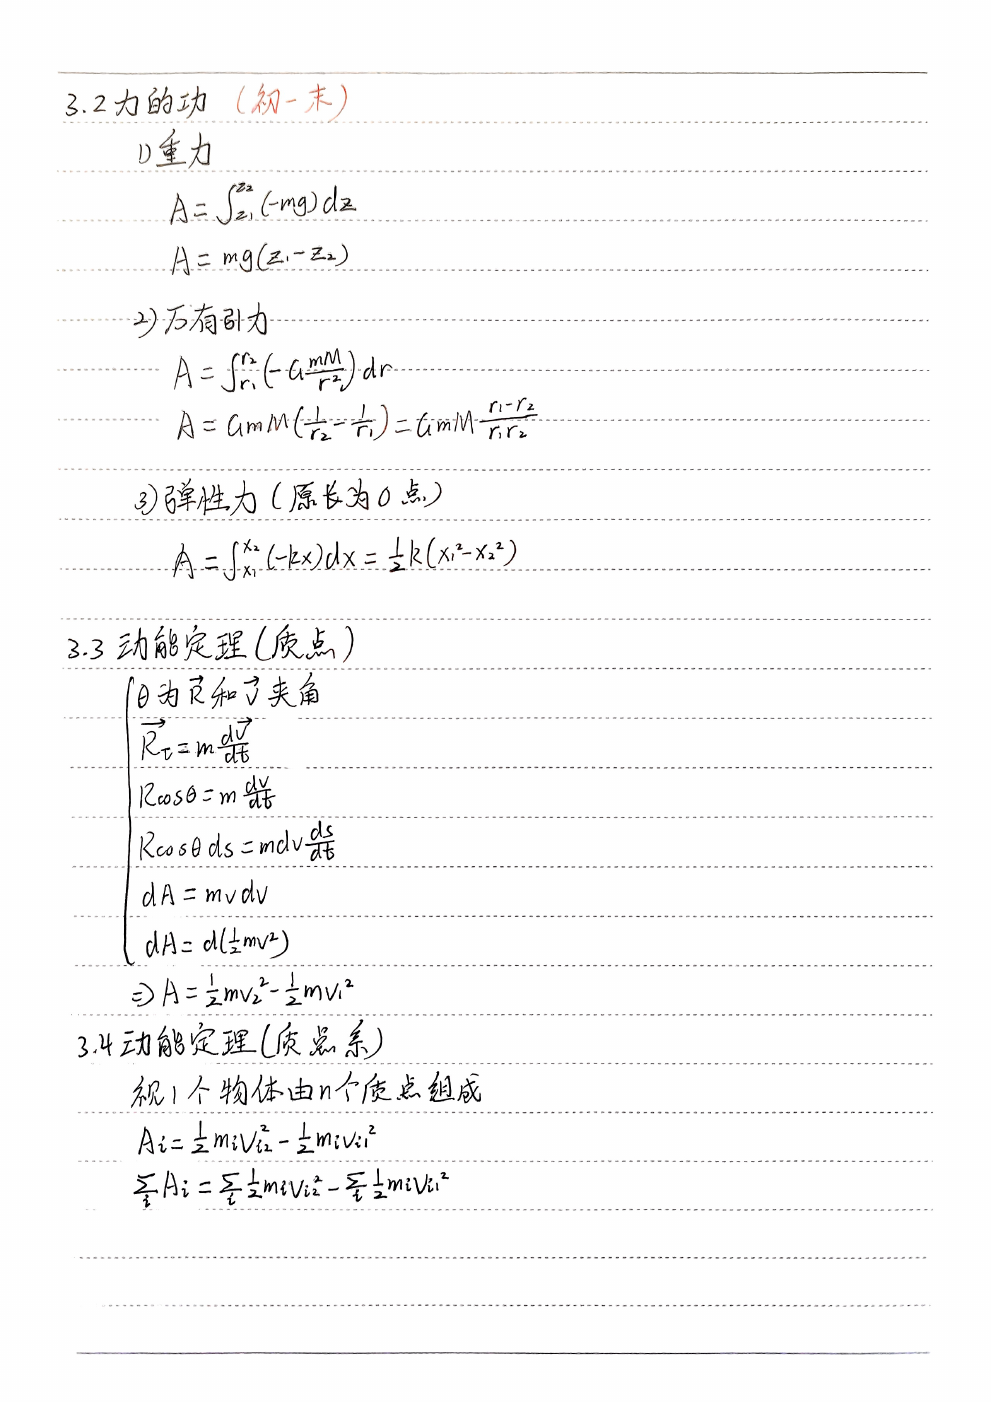 3.2 力的功 (初-末)
1) 重力
A = ∫_{z₁}^{z₂} (-mg) dz
A = mg(z₁ - z₂)
2) 万有引力
A = ∫_{r₁}^{r₂} (-G \frac{mM}{r²}) dr
A = GmM(\frac{1}{r₂} - \frac{1}{r₁}) = GmM \frac{r₁-r₂}{r₁r₂}
3) 弹性力 (原长为0点)
A = ∫_{x₁}^{x₂} (-kx) dx = \frac{1}{2}k(x₁² - x₂²)
3.3 动能定理(质点)
θ为\vec{R}和\vec{v}夹角
\vec{R_τ} = m\frac{d\vec{v}}{dt}
Rcosθ = m\frac{dv}{dt}
Rcosθ ds = mdv\frac{ds}{dt}
dA = mvdv
dA = d(\frac{1}{2}mv²)
⇒ A = \frac{1}{2}mv₂² - \frac{1}{2}mv₁²
3.4 动能定理(质点系)
视1个物体由n个质点组成
A_i = \frac{1}{2}m_iv_{i2}² - \frac{1}{2}m_iv_{i1}²
\sum_i A_i = \sum_i \frac{1}{2}m_iv_{i2}² - \sum_i \frac{1}{2}m_iv_{i1}²